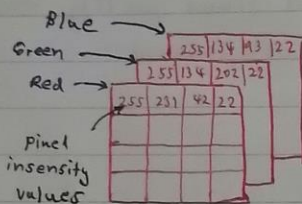 Blue
255 134 93 22
Green
255 134 202 22
Red
255 231 42 22
Pixel
insensity
values